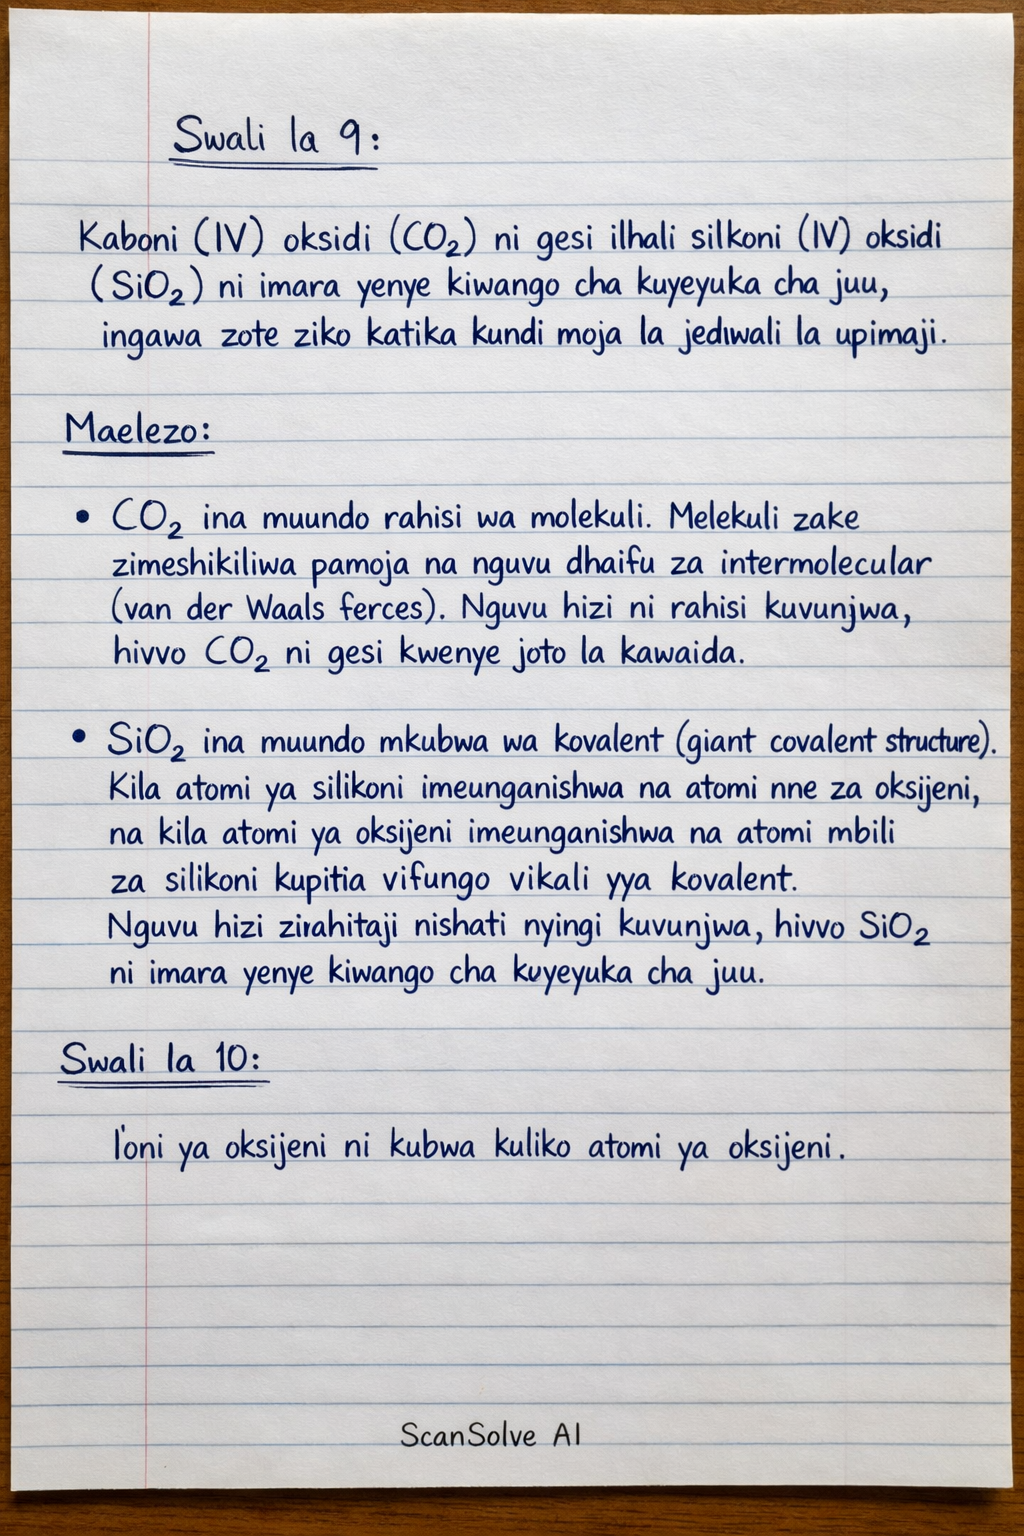 Swali la 9:
Kaboni (IV) oksidi (CO₂) ni gesi ilhali silkoni (IV) oksidi
(SiO₂) ni imara yenye kiwango cha kuyeyuka cha juu,
ingawa zote ziko katika kundi moja la jedwali la upimaji.
Maelezo:
• CO₂ ina muundo rahisi wa molekuli. Melekuli zake
zimeshikiliwa pamoja na nguvu dhaifu za intermolecular
(van der Waals ferces). Nguvu hizi ni rahisi kuvunjwa,
hivvo CO₂ ni gesi kwenye joto la kawaida.
• SiO₂ ina muundo mkubwa wa kovalent (giant covalent structure).
Kila atomi ya silikoni imeunganishwa na atomi nne za oksijeni,
na kila atomi ya oksijeni imeunganishwa na atomi mbili
za silikoni kupitia vifungo vikali yya kovalent.
Nguvu hizi zirahitaji nishati nyingi kuvunjwa, hivvo SiO₂
ni imara yenye kiwango cha kuyeyuka cha juu.
Swali la 10:
I'oni ya oksijeni ni kubwa kuliko atomi ya oksijeni.
ScanSolve AI